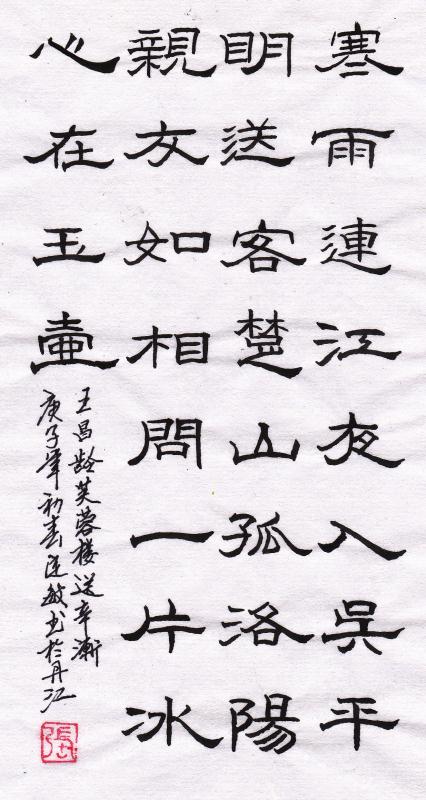 寒雨連江夜入吳平
明送客楚山孤洛陽
親友如相問一片冰
心在玉壷
王昌龄芙蓉楼送辛渐
庚子年初春连敏书於丹江
張